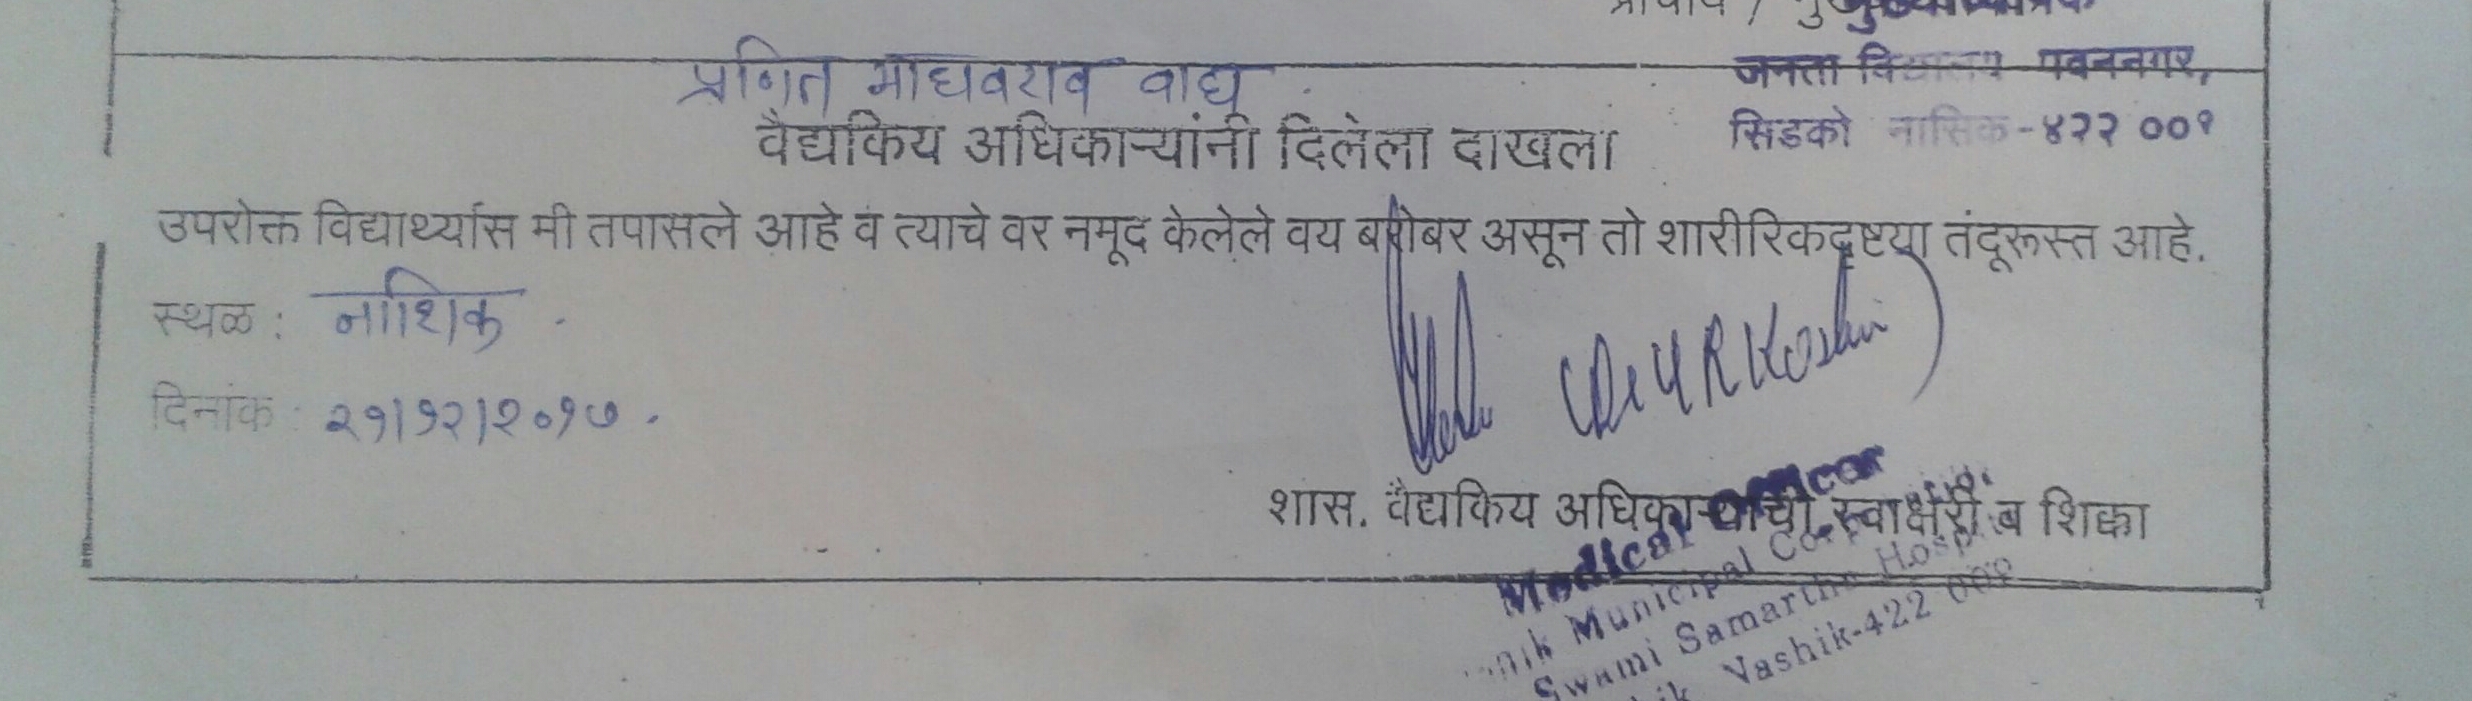 प्राचार्य / मुख्याध्यापक
जनता विद्यालय पवननगर,
सिडको नासिक-४२२ ००९
प्रणित माधवराव वाघ
वैद्यकिय अधिकाऱ्यांनी दिलेला दाखला
उपरोक्त विद्यार्थ्यास मी तपासले आहे व त्याचे वर नमूद केलेले वय बरोबर असून तो शारीरिकदृष्टया तंदूरूस्त आहे.
स्थळ : नाशिक .
दिनांक : २१/१२/२०१७ .
शास. वैद्यकिय अधिकाऱ्याची स्वाक्षरी व शिक्का
Medical Officer
Municipal
Swami Samarth Hosp
Nashik-422